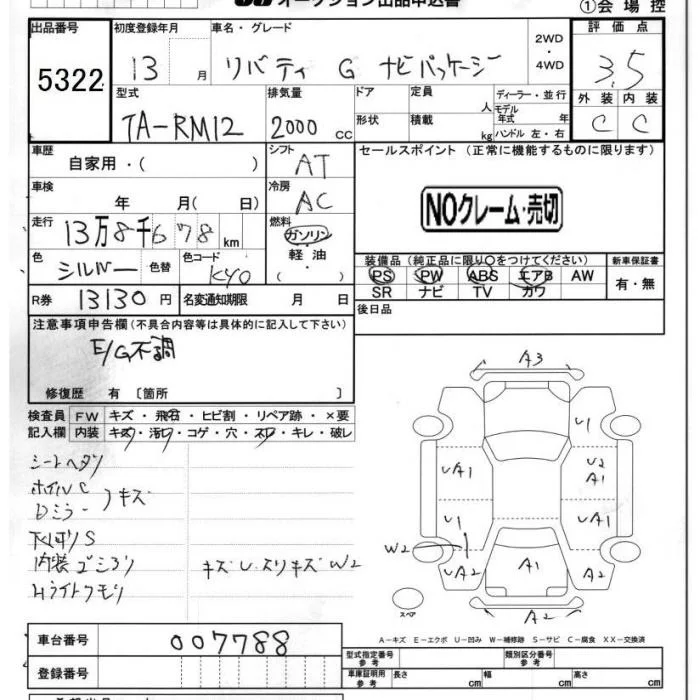 オークション出品申込書
①会場控
出品番号
5322
初度登録年月
13 月
車名・グレード
リバティ G ナビパッケージ
2WD
・
4WD
評価点
3.5
外装 内装
C C
型式
TA-RM12
排気量
2000 cc
ドア
定員
人
形状
積載
kg
ディーラー・並行
モデル
年式 年
ハンドル 左・右
車歴
自家用・( )
シフト
AT
車検
年 月( 日)
冷房
AC
走行
13万8千678 km
燃料
ガソリン
・
軽油
・
( )
色
シルバー
色替
色コード
KY0
R券 13130 円
名変通知期限 月 日
セールスポイント(正常に機能するものに限ります)
NOクレーム・売切
装備品(純正品に限り○をつけてください)
PS PW ABS エアB AW
SR ナビ TV カワ
新車保証書
有・無
後日品
注意事項申告欄(不具合内容等は具体的に記入して下さい)
E/G不調
修復歴 有〔箇所 〕
検査員
記入欄
FW キズ・飛石・ヒビ割・リペア跡・×要
内装 キズ・汚レ・コゲ・穴・スレ・キレ・破レ
シートヘタリ
ホイルC
Dミラー
キズ
下廻りS
内装
Hライトクモリ
キズU.スリキズW2
A3
U1
UA1
U2
A1
U1
UA1
W2
UA2
A1
A2
A2
スペア
A−キズ E−エクボ U−凹み W−補修跡 S−サビ C−腐食 XX−交換済
車台番号 007788
登録番号
型式指定番号
参考
類別区分番号
参考
車庫証明用
参考
長さ cm
幅 cm
高さ cm